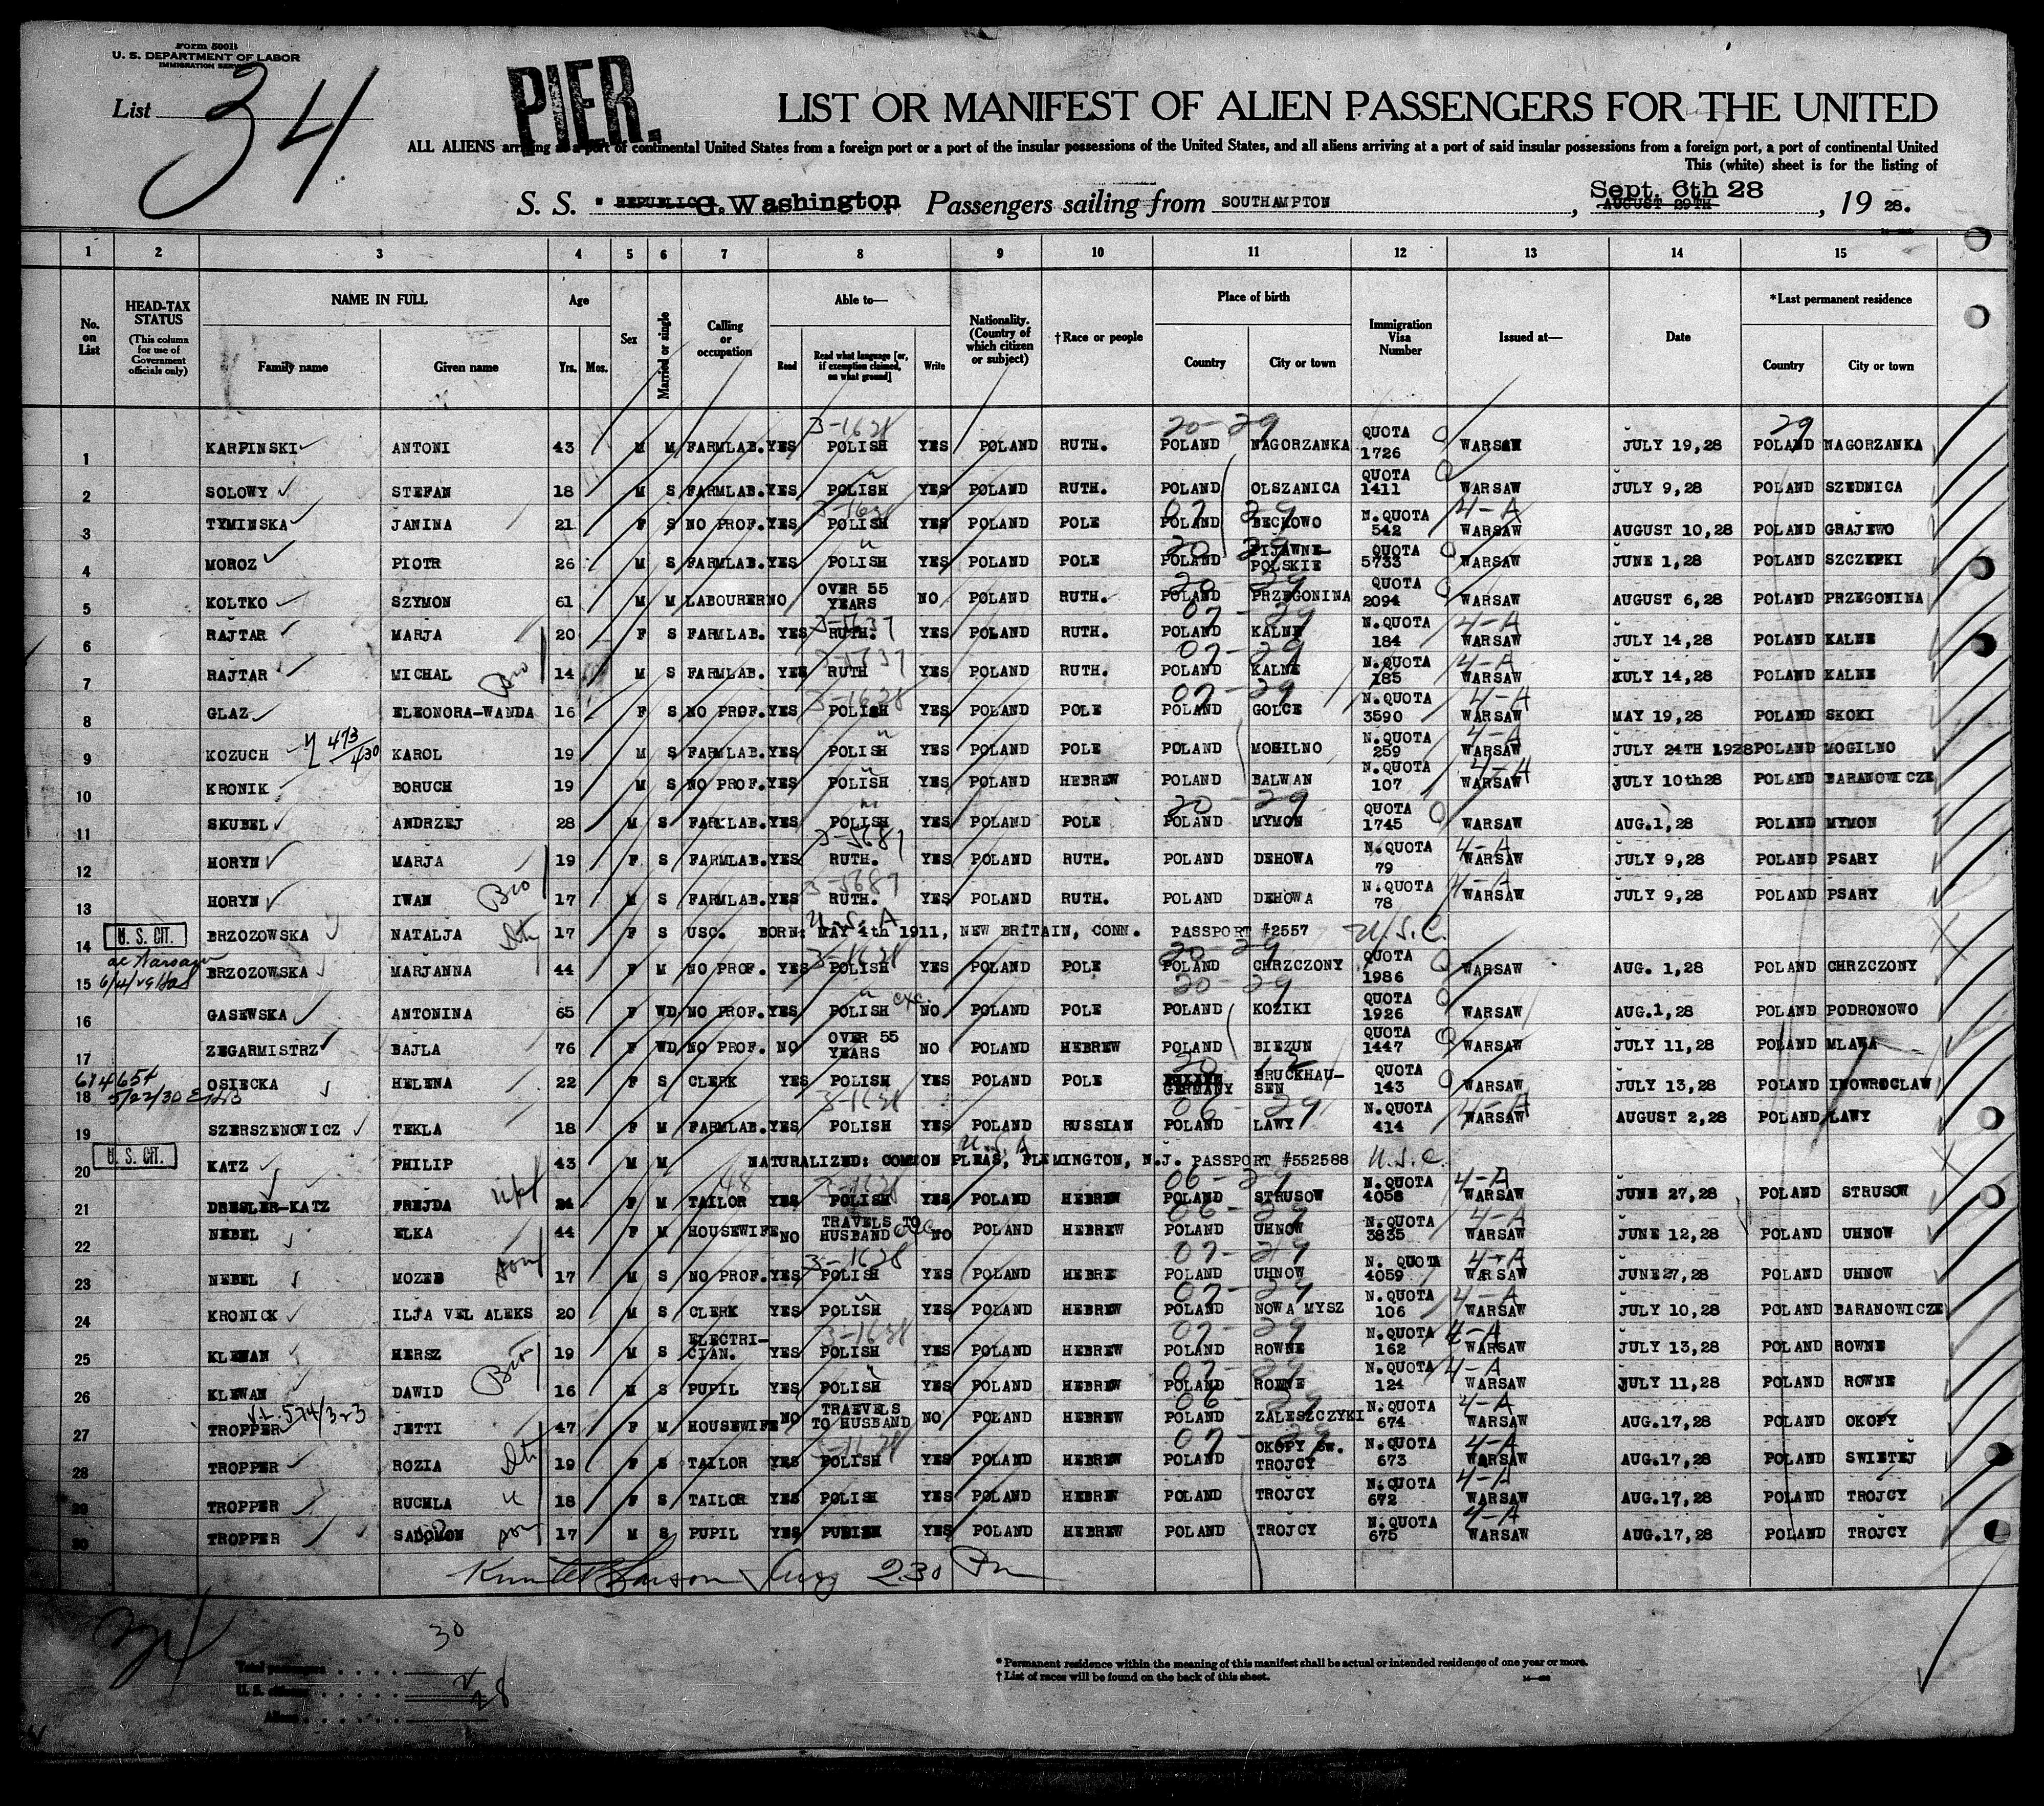 Form 500B
U. S. DEPARTMENT OF LABOR
IMMIGRATION SERVICE
List 34
PIER.
LIST OR MANIFEST OF ALIEN PASSENGERS FOR THE UNITED
ALL ALIENS arriving at a port of continental United States from a foreign port or a port of the insular possessions of the United States, and all aliens arriving at a port of said insular possessions from a foreign port, a port of continental United
This (white) sheet is for the listing of
S. S. " REPUBLIC G. Washington Passengers sailing from SOUTHAMPTON, Sept. 6th 28 AUGUST 29TH, 19 28.
1 2 3 4 5 6 7 8 9 10 11 12 13 14 15
No. on List HEAD-TAX STATUS (This column for use of Government officials only) NAME IN FULL Family name Given name Age Yrs. Mos. Sex Married or single Calling or occupation Able to— Read Read what language [or, if exemption claimed, on what ground] Write Nationality. (Country of which citizen or subject) †Race or people Place of birth Country City or town Immigration Visa Number Issued at— Date *Last permanent residence Country City or town
1 KARPINSKI ANTONI 43 M M FARMLAB. YES POLISH YES POLAND RUTH. POLAND NAGORZANKA QUOTA 1726 WARSAW JULY 19,28 POLAND NAGORZANKA
2 SOLOWY STEFAN 18 M S FARMLAB. YES POLISH YES POLAND RUTH. POLAND OLSZANICA QUOTA 1411 WARSAW JULY 9,28 POLAND SZEDNICA
3 TYMINSKA JANINA 21 F S NO PROF. YES POLISH YES POLAND POLE POLAND BECKOWO N.QUOTA 542 4-A WARSAW AUGUST 10,28 POLAND GRAJEWO
4 MOROZ PIOTR 26 M S FARMLAB. YES POLISH YES POLAND POLE POLAND PIJAWNE- POLSKIE QUOTA 5733 WARSAW JUNE 1,28 POLAND SZCZEPKI
5 KOLTKO SZYMON 61 M M LABOURER NO OVER 55 YEARS NO POLAND RUTH. POLAND PRZEGONINA QUOTA 2094 WARSAW AUGUST 6,28 POLAND PRZEGONINA
6 RAJTAR MARJA 20 F S FARMLAB. YES RUTH. YES POLAND RUTH. POLAND KALNE N.QUOTA 184 4-A WARSAW JULY 14,28 POLAND KALNE
7 RAJTAR MICHAL Bro 14 M S FARMLAB. YES RUTH YES POLAND RUTH. POLAND KALNE N.QUOTA 185 4-A WARSAW JULY 14,28 POLAND KALNE
8 GLAZ ELEONORA-WANDA 16 F S NO PROF. YES POLISH YES POLAND POLE POLAND GOLCE N.QUOTA 3590 4-A WARSAW MAY 19,28 POLAND SKOKI
9 KOZUCH 473/430 KAROL 19 M S FARMLAB. YES POLISH YES POLAND POLE POLAND MOGILNO N.QUOTA 259 4-A WARSAW JULY 24TH 1928 POLAND MOGILNO
10 KRONIK BORUCH 19 M S NO PROF. YES POLISH YES POLAND HEBREW POLAND BALWAN N.QUOTA 107 4-A WARSAW JULY 10th28 POLAND BARANOWICZE
11 SKUBEL ANDRZEJ 28 M S FARMLAB. YES POLISH YES POLAND POLE POLAND MYMON QUOTA 1745 WARSAW AUG.1,28 POLAND MYMON
12 HORYN MARJA 19 F S FARMLAB. YES RUTH. YES POLAND RUTH. POLAND DEHOWA N.QUOTA 79 4-A WARSAW JULY 9,28 POLAND PSARY
13 HORYN IWAN Bro 17 M S FARMLAB. YES RUTH. YES POLAND RUTH. POLAND DEHOWA N.QUOTA 78 4-A WARSAW JULY 9,28 POLAND PSARY
14 U. S. CIT. BRZOZOWSKA NATALJA 17 F S USC. BORN: MAY 4th 1911, NEW BRITAIN, CONN. PASSPORT #2557 U.S.C.
15 BRZOZOWSKA MARJANNA 44 F M NO PROF. YES POLISH YES POLAND POLE POLAND CHRZCZONY QUOTA 1986 WARSAW AUG. 1,28 POLAND CHRZCZONY
16 GASEWSKA ANTONINA 65 F WD NO PROF. YES POLISH NO POLAND POLE POLAND KOZIKI QUOTA 1926 WARSAW AUG.1,28 POLAND PODRONOWO
17 ZEGARMISTRZ BAJLA 76 F WD NO PROF. NO OVER 55 YEARS NO POLAND HEBREW POLAND BIEZUN QUOTA 1447 WARSAW JULY 11,28 POLAND MLAWA
18 OSIECKA HELENA 22 F S CLERK YES POLISH YES POLAND POLE GERMANY BRUCKHAU- SEN QUOTA 143 WARSAW JULY 13,28 POLAND INOWROCLAW
19 SZERSZENOWICZ TEKLA 18 F M FARMLAB. YES POLISH YES POLAND RUSSIAN POLAND LAWY N.QUOTA 414 4-A WARSAW AUGUST 2,28 POLAND LAWY
20 U. S. CIT. KATZ PHILIP 43 M M NATURALIZED: COMMON PLEAS, FLEMINGTON, N.J. PASSPORT #552588 U.S.C.
21 DRESLER-KATZ FREJDA 24 F M TAILOR YES POLISH YES POLAND HEBREW POLAND STRUSOW N.QUOTA 4058 4-A WARSAW JUNE 27,28 POLAND STRUSOW
22 NEBEL ELKA 44 F M HOUSEWIFE NO TRAVELS TO HUSBAND NO POLAND HEBREW POLAND UHNOW N.QUOTA 3835 4-A WARSAW JUNE 12,28 POLAND UHNOW
23 NEBEL MOZES son 17 M S NO PROF. YES POLISH YES POLAND HEBRE POLAND UHNOW N. QUOTA 4059 4-A WARSAW JUNE27,28 POLAND UHNOW
24 KRONICK ILJA VEL ALEKS 20 M S CLERK YES POLISH YES POLAND HEBREW POLAND NOWA MYSZ N.QUOTA 106 4-A WARSAW JULY 10,28 POLAND BARANOWICZE
25 KLEWAN HERSZ 19 M S ELECTRI- CIAN. YES POLISH YES POLAND HEBREW POLAND ROWNE N.QUOTA 162 4-A WARSAW JULY 13,28 POLAND ROWNE
26 KLEWAN DAWID Bro 16 M S PUPIL YES POLISH YES POLAND HEBREW POLAND ROWNE N.QUOTA 124 4-A WARSAW JULY 11,28 POLAND ROWNE
27 TROPPER JETTI 47 F M HOUSEWIFE NO TRAEVELS TO HUSBAND NO POLAND HEBREW POLAND ZALESZCZYKI N.QUOTA 674 4-A WARSAW AUG.17,28 POLAND OKOPY
28 TROPPER ROZIA 19 F S TAILOR YES POLISH YES POLAND HEBREW POLAND OKOPY SW. TROJCY N.QUOTA 673 4-A WARSAW AUG.17,28 POLAND SWIETEJ
29 TROPPER RUCHLA 18 F S TAILOR YES POLISH YES POLAND HEBREW POLAND TROJCY N.QUOTA 672 4-A WARSAW AUG.17,28 POLAND TROJCY
30 TROPPER SALOMON son 17 M S PUPIL YES YES POLAND HEBREW POLAND TROJCY N.QUOTA 675 4-A WARSAW AUG.17,28 POLAND TROJCY
2.30 Pm
Total passengers . . . . 30
U. S. citizens . . . . . 2
Aliens . . . . . . 28
* Permanent residence within the meaning of this manifest shall be actual or intended residence of one year or more.
† List of races will be found on the back of this sheet.